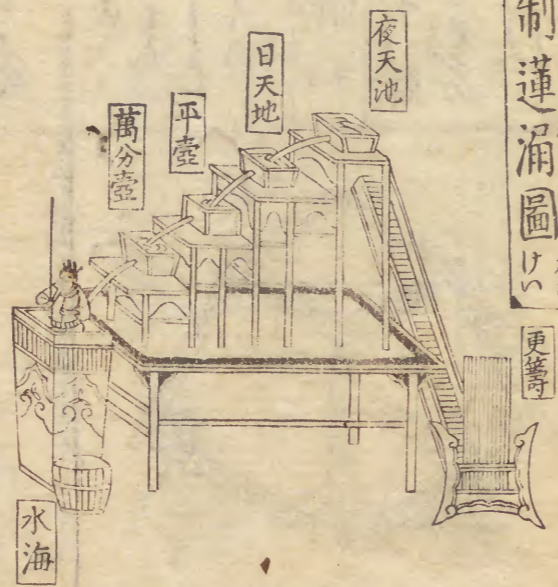 制蓮漏圖
けい
更籌
夜天池
日天地
平壺
萬分壺
水海